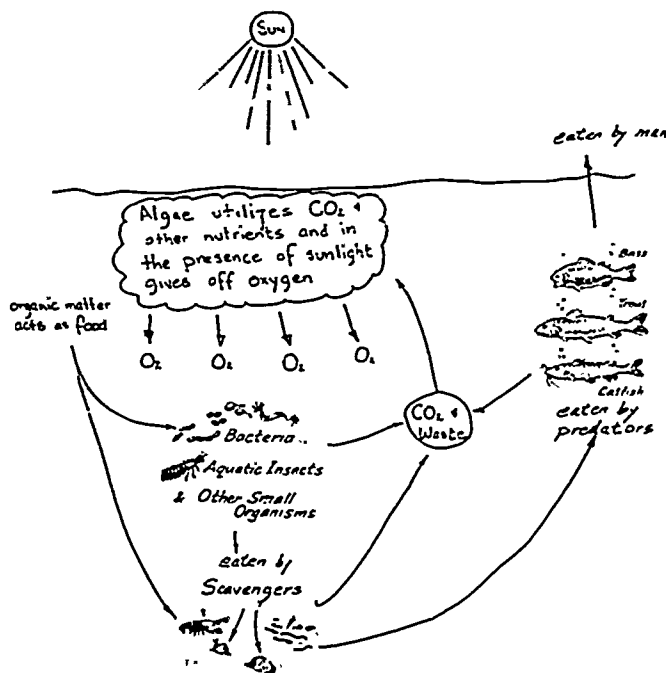 SUN
eaten by man
Algae utilizes CO2 &
other nutrients and in
the presence of sunlight
gives off oxygen
organic matter
acts as food
O2 O2 O2 O2
Bass
Trout
Catfish
eaten by
predators
CO2 &
Waste
Bacteria
Aquatic Insects
& Other Small
Organisms
eaten by
Scavengers